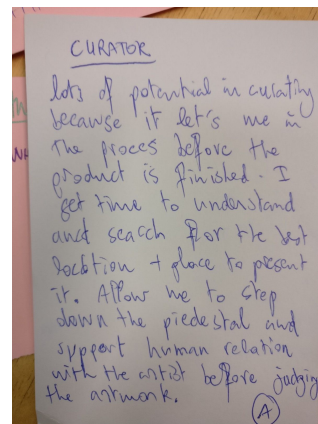 CURATOR
lots of potential in curating
because it let's me in
the proces before the
product is finished. I
get time to understand
and search for the best
location + place to present
it. Allow me to step
down the piedestal and
support human relation
with the artist before judging
the artwork.
A